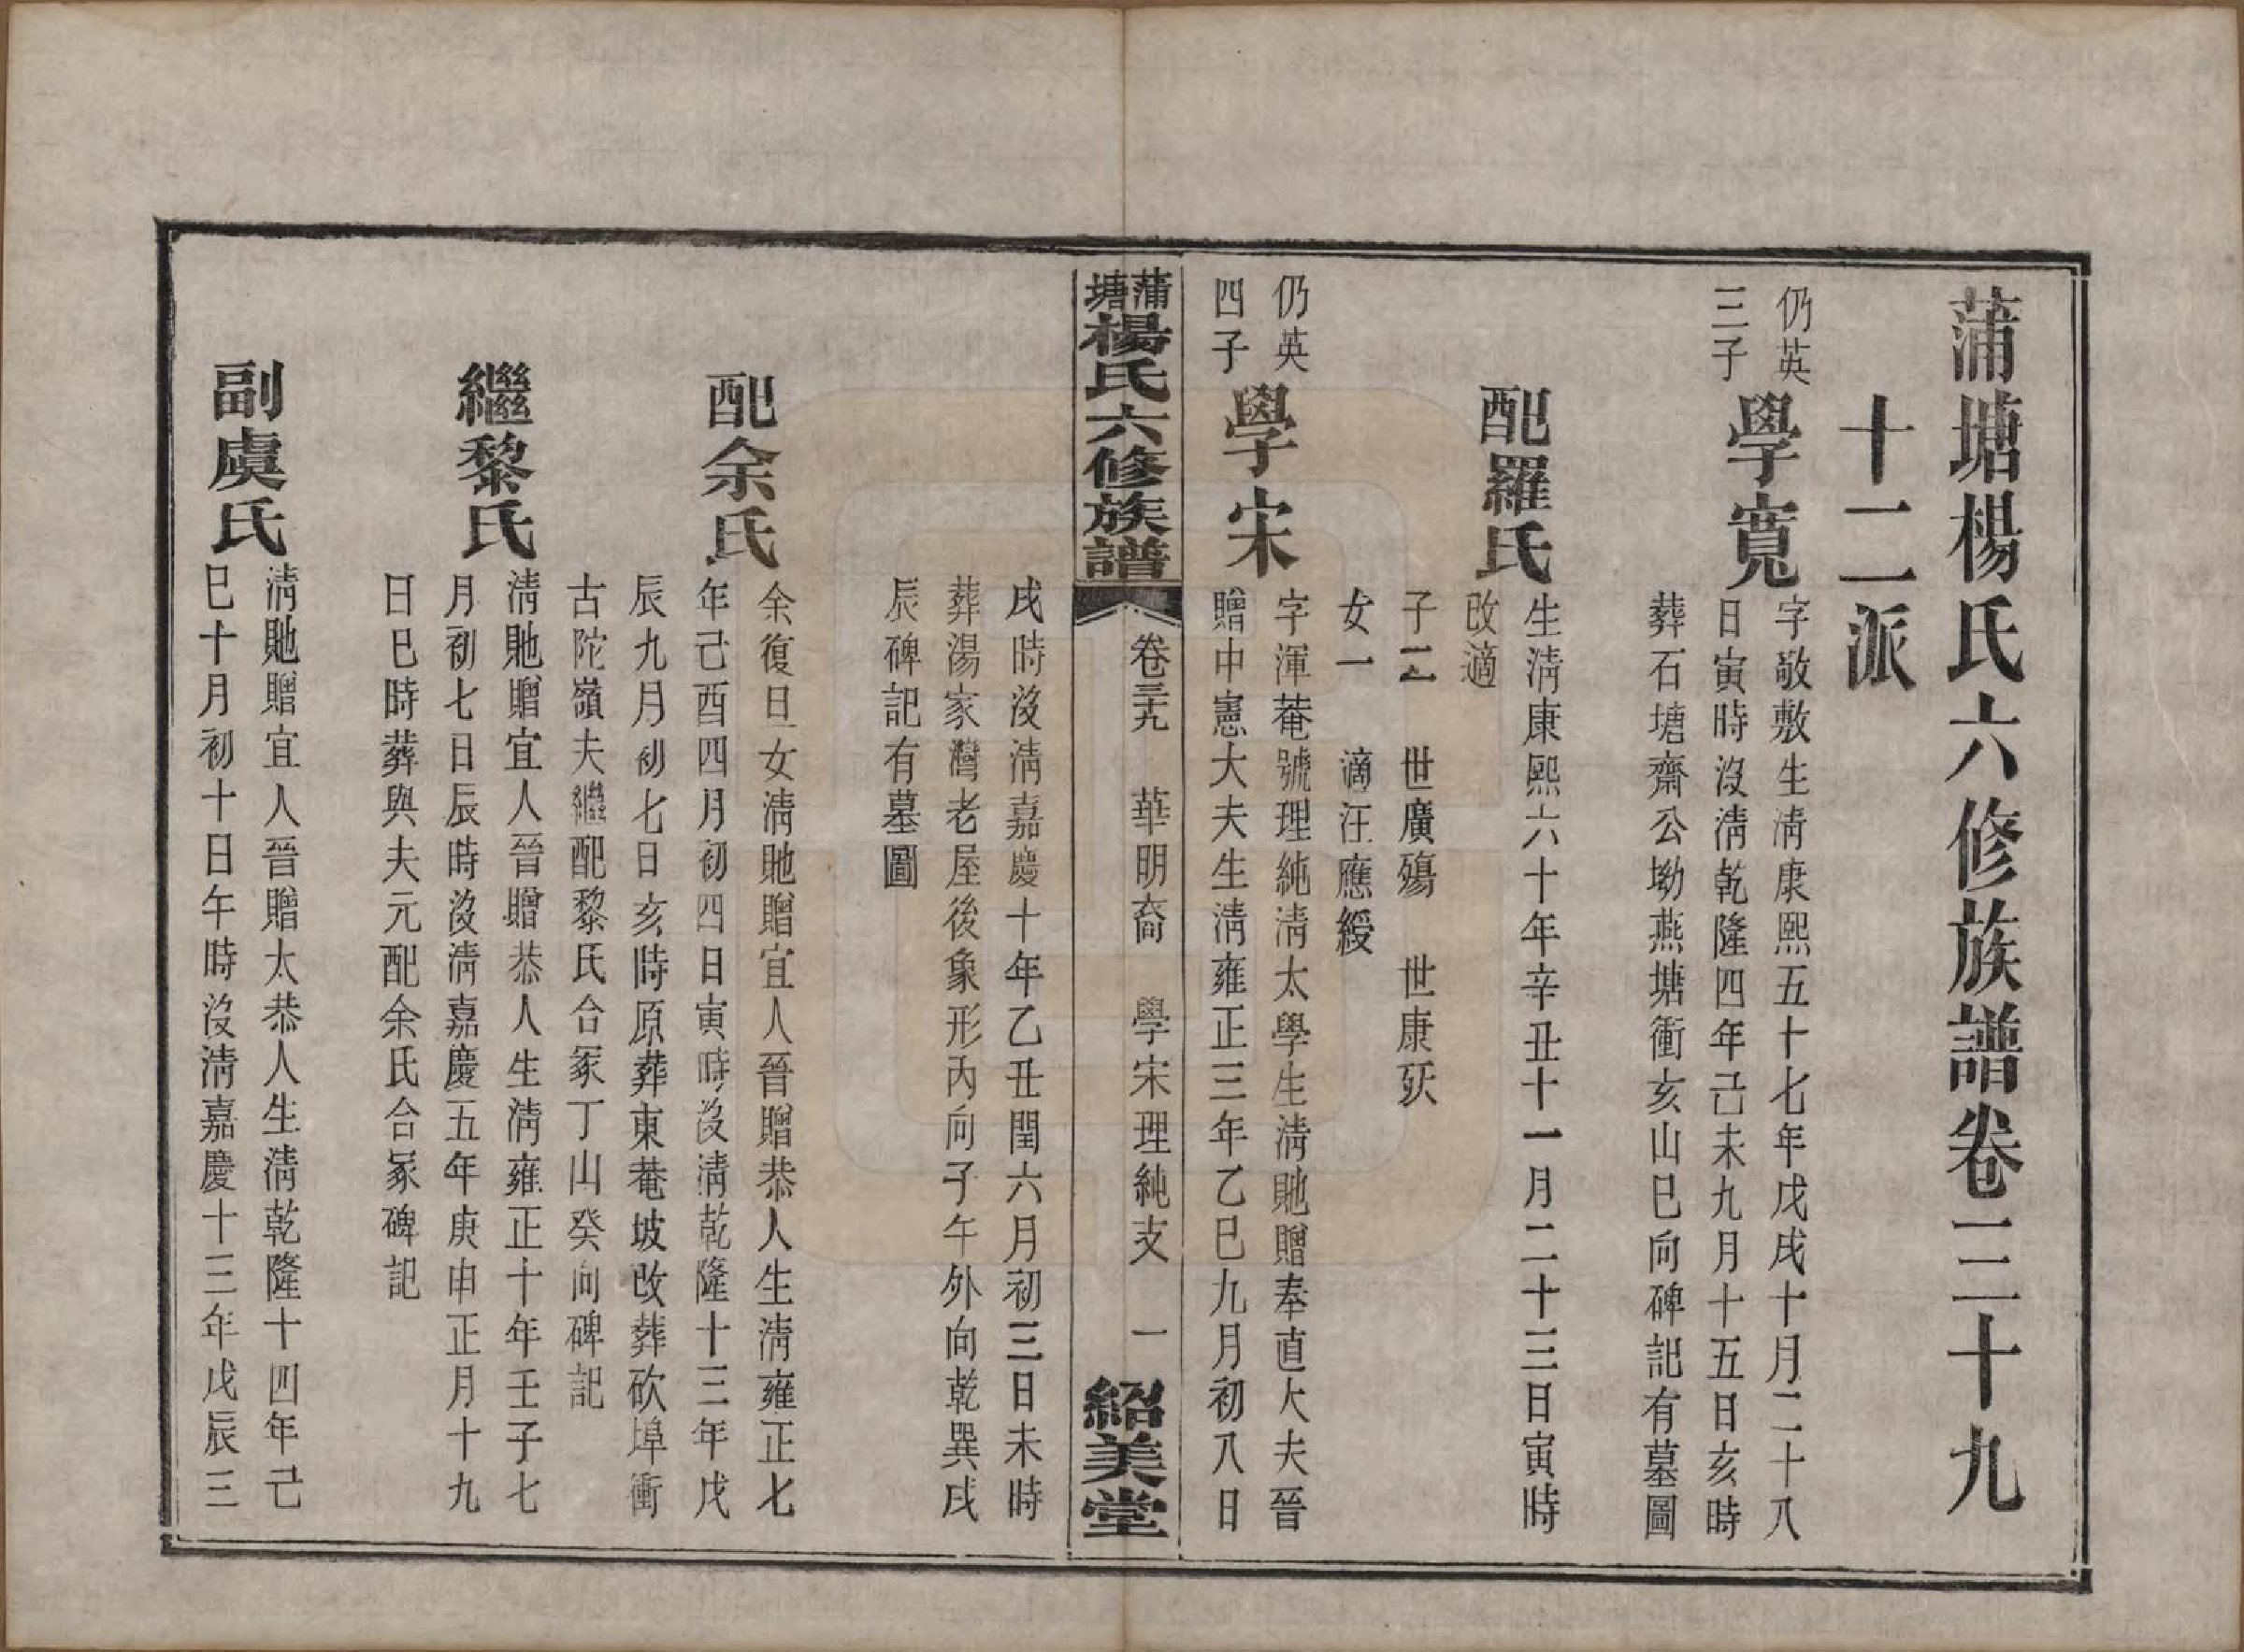 蒲塘楊氏六修族譜卷三十九
十二派
仍英
三子
學寬
字敬敷生淸康熙五十七年戊戌十月二十八
日寅時沒淸乾隆四年己未九月十五日亥時
葬石塘齋公坳燕塘衝亥山巳向碑記有墓圖
配羅氏
生淸康熙六十年辛丑十一月二十三日寅時
改適
子二　世廣殤　世康殀
女一　適汪應綬
仍英
四子
學宋
字渾菴號理純淸太學生淸貤贈奉直大夫晉
贈中憲大夫生淸雍正三年乙巳九月初八日
蒲塘楊氏六修族譜　卷三十九　華明裔　學宋理純支　一　紹美堂
戌時沒淸嘉慶十年乙丑閏六月初三日未時
葬湯家灣老屋後象形內向子午外向乾巽戌
辰碑記有墓圖
配余氏
余復旦女淸貤贈宜人晉贈恭人生淸雍正七
年己酉四月初四日寅時沒淸乾隆十三年戊
辰九月初七日亥時原葬東菴坡改葬砍埠衝
古陀嶺夫繼配黎氏合冢丁山癸向碑記
繼黎氏
淸貤贈宜人晉贈恭人生淸雍正十年壬子七
月初七日辰時沒淸嘉慶五年庚申正月十九
日巳時葬與夫元配余氏合冢碑記
副虞氏
淸貤贈宜人晉贈太恭人生淸乾隆十四年己
巳十月初十日午時沒淸嘉慶十三年戊辰三